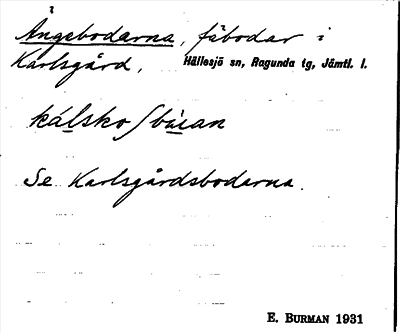 Angebodarna, fäbodar i
Karlsgård, Hällesjö sn, Ragunda tg, Jämtl. l.
Se Karlsgårdsbodarna.
E. BURMAN 1931